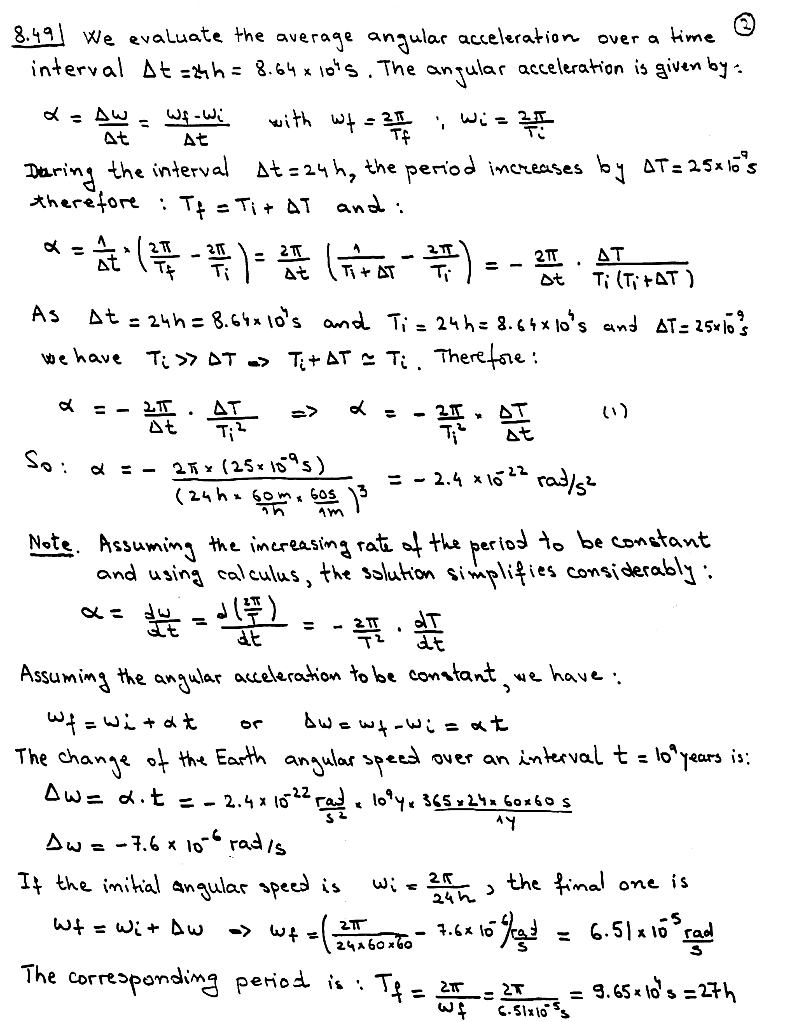 ②
8.49| We evaluate the average angular acceleration over a time
interval Δt = 24h = 8.64 x 10⁴s. The angular acceleration is given by:
α = Δw/Δt = (wf - wi)/Δt with wf = 2π/Tf ; wi = 2π/Ti
During the interval Δt = 24h, the period increases by ΔT = 25x10⁻⁹s
therefore : Tf = Ti + ΔT and :
α = 1/Δt x (2π/Tf - 2π/Ti) = 2π/Δt (1/(Ti + ΔT) - 2π/Ti) = - 2π/Δt · ΔT/(Ti (Ti + ΔT))
As Δt = 24h = 8.64x10⁴s and Ti = 24h = 8.64x10⁴s and ΔT = 25x10⁻⁹s
we have Ti >> ΔT => Ti + ΔT ≃ Ti. Therefore :
α = - 2π/Δt · ΔT/Ti² => α = - 2π/Ti² x ΔT/Δt (1)
So: α = - 2π x (25x10⁻⁹s)/(24h x 60m/1h x 60s/1m)³ = - 2.4 x 10⁻²² rad/s²
Note. Assuming the increasing rate of the period to be constant
and using calculus, the solution simplifies considerably :
α = dw/dt = d(2π/T)/dt = - 2π/T² · dT/dt
Assuming the angular acceleration to be constant, we have :
wf = wi + αt or Δw = wf - wi = αt
The change of the Earth angular speed over an interval t = 10⁹ years is:
Δw = α.t = - 2.4 x 10⁻²² rad/s² x 10⁹y x 365x24x60x60 s/1y
Δw = -7.6 x 10⁻⁶ rad/s
If the initial angular speed is wi = 2π/24h, the final one is
wf = wi + Δw => wf = (2π/24x60x60 - 7.6x10⁻⁶) rad/s = 6.51x10⁻⁵ rad/s
The corresponding period is : Tf = 2π/wf = 2π/6.51x10⁻⁵s = 9.65x10⁴s = 27h